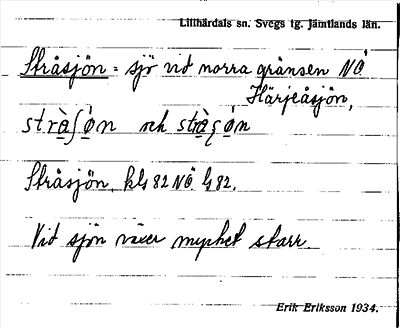 Lillhärdals sn. Svegs tg. Jämtlands län.
Stråsjön = sjö vid norra gränsen NÖ
Härjeåsjön,
och
Stråsjön, kbl 82 NÖ lg 82.
Vid sjön växer mycket starr.
Erik Eriksson 1934.